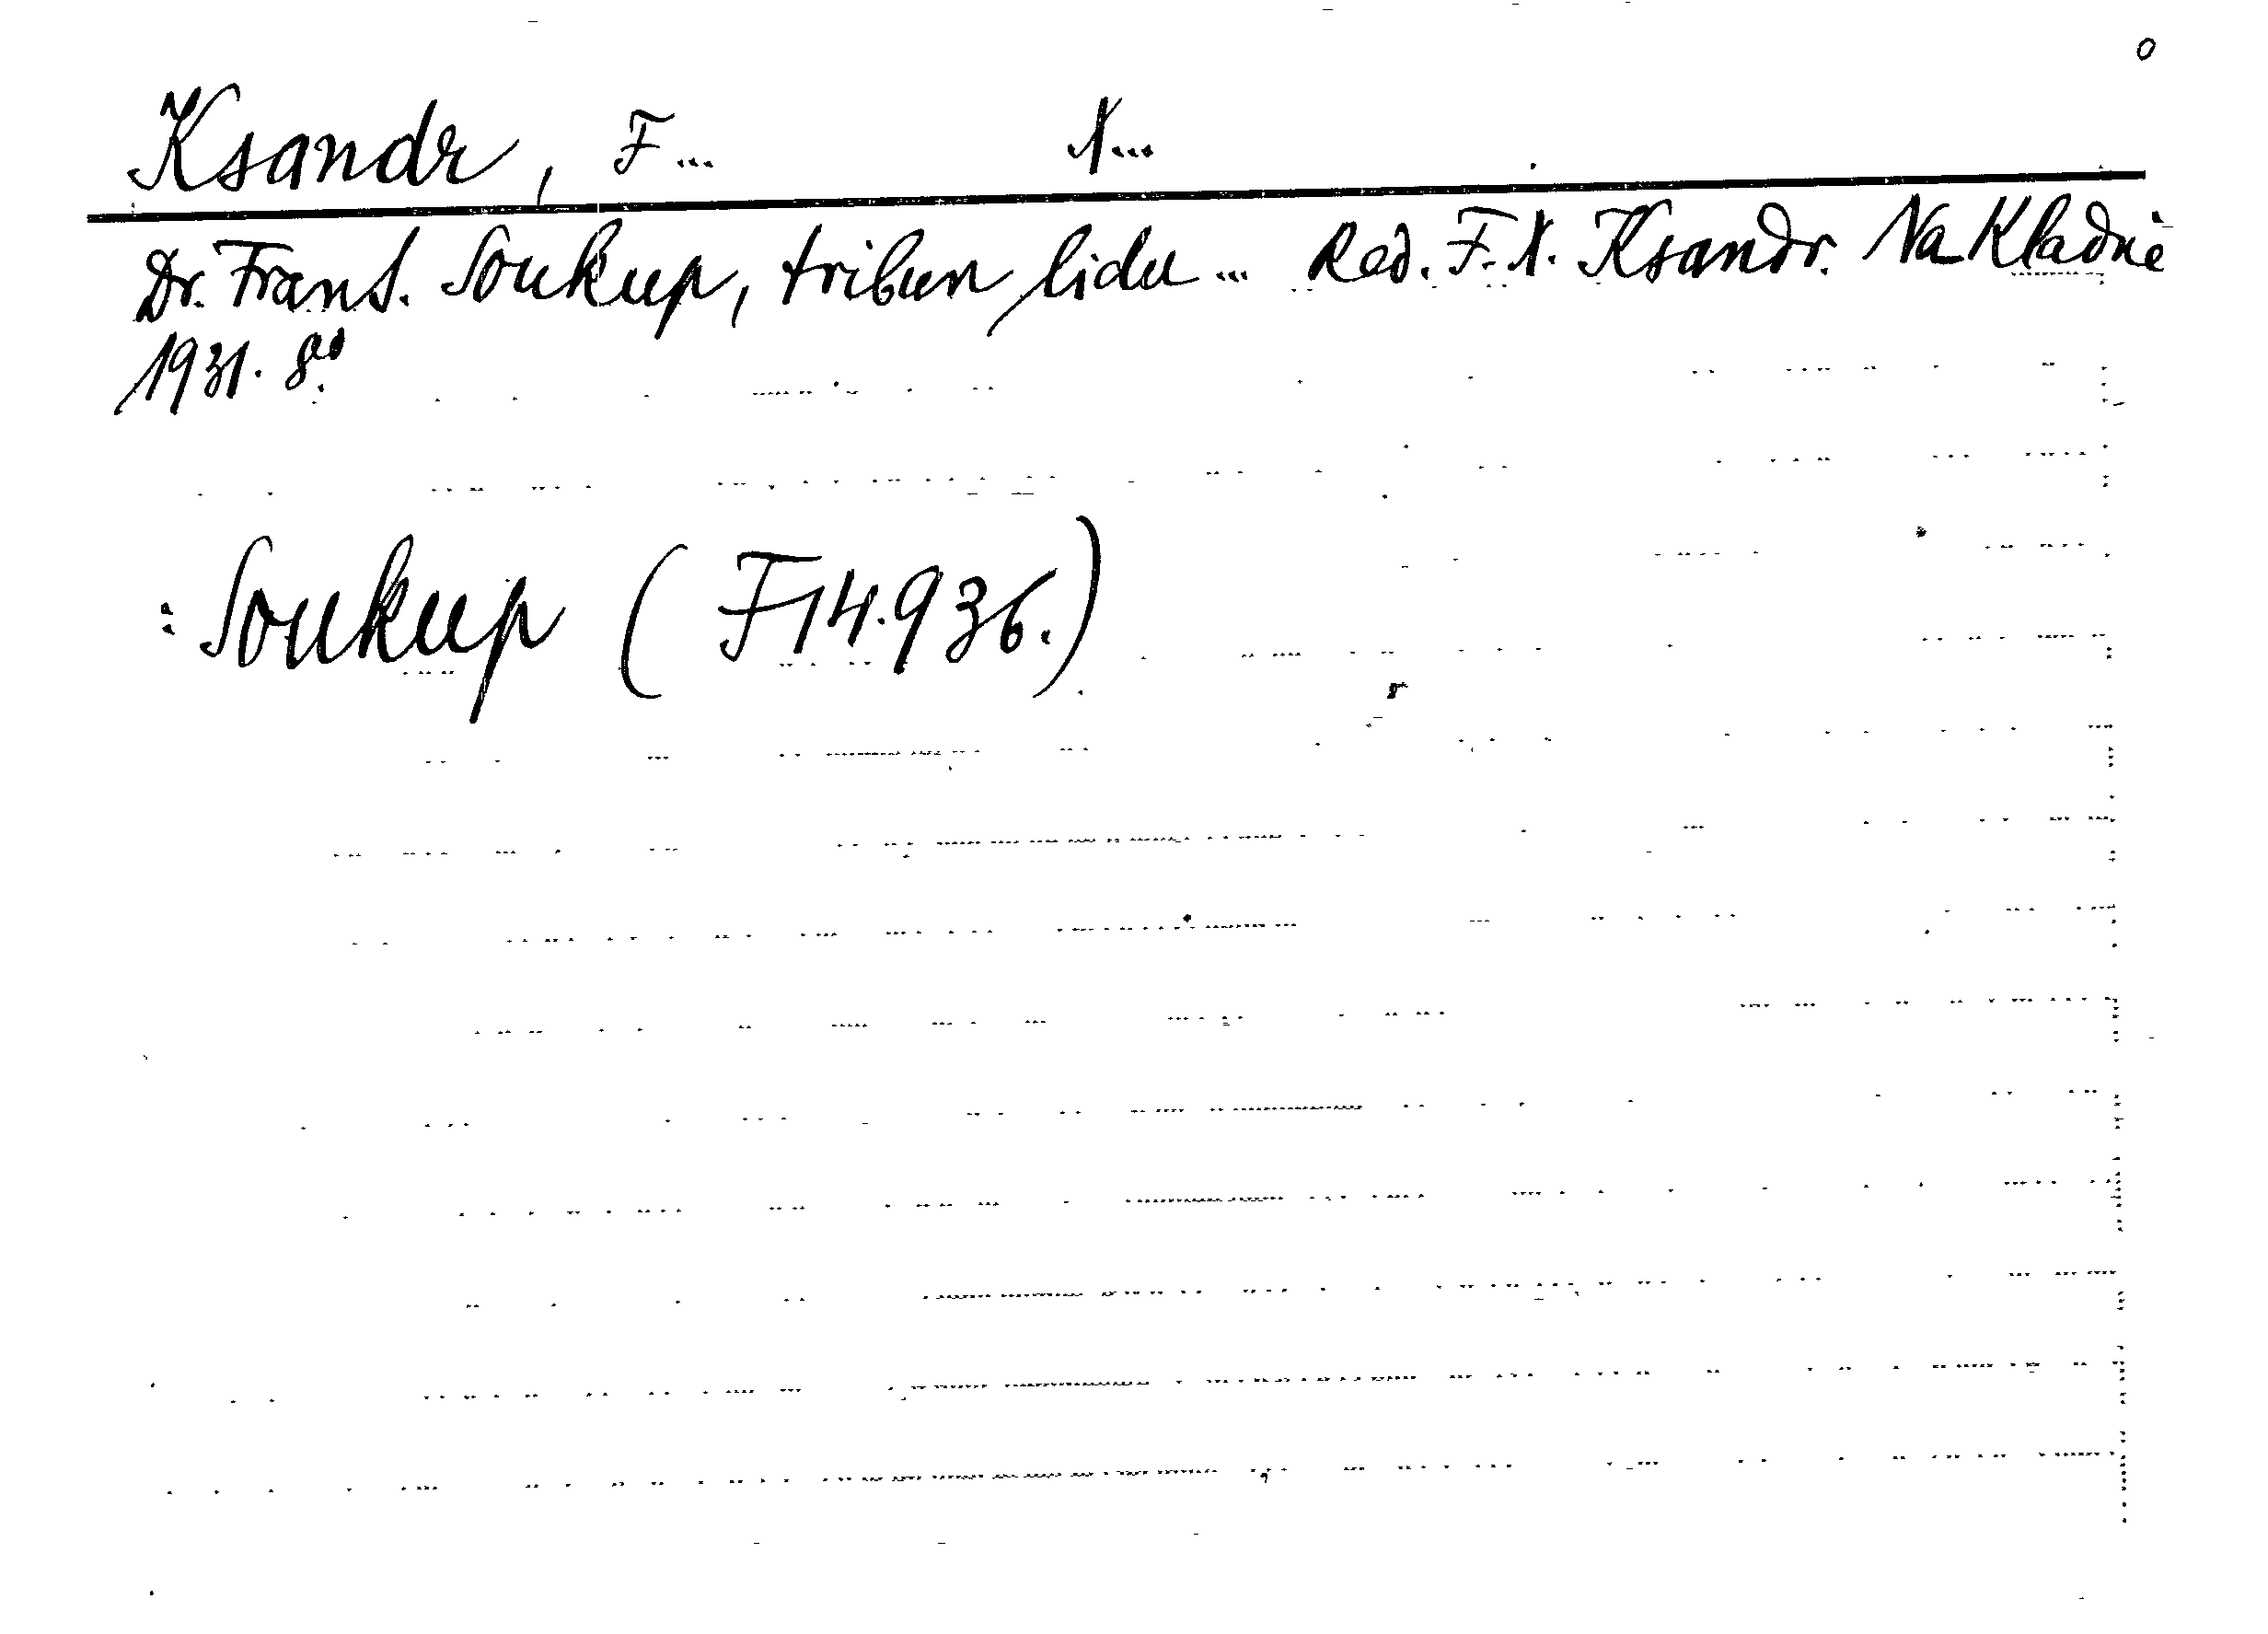 o
Ksandr, F... X...
Dr. Frant. Soukup, tribun lidu... Red. F. X. Ksandr. Na Kladně
1931. 8°.
: Soukup (F 14.936.)